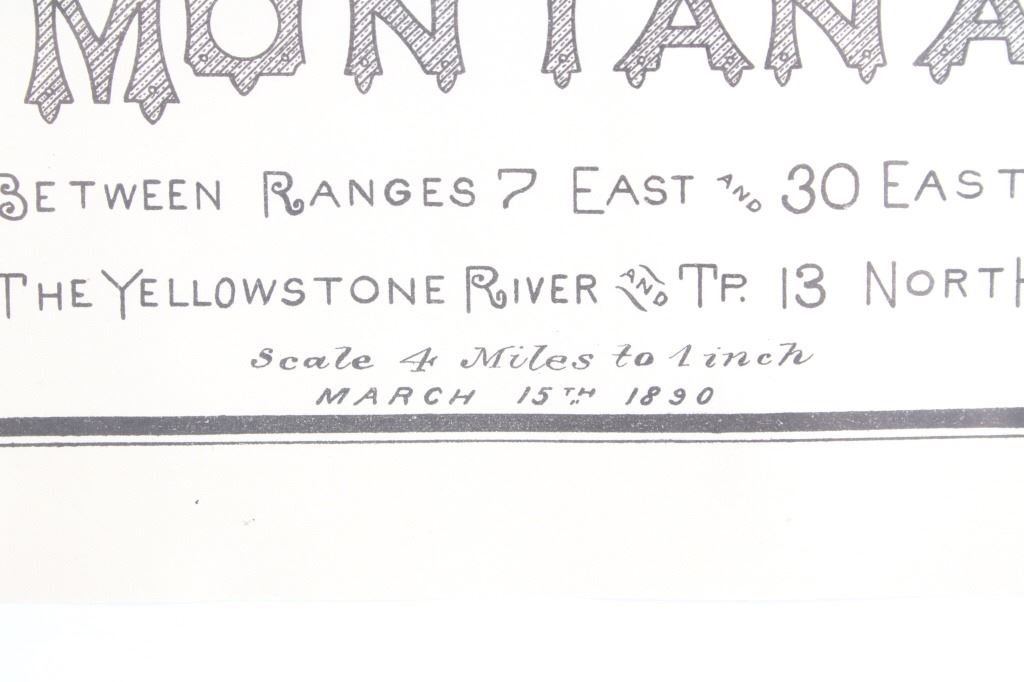 MONTANA
BETWEEN RANGES 7 EAST AND 30 EAST
THE YELLOWSTONE RIVER AND TP. 13 NORTH
Scale 4 Miles to 1 inch
MARCH 15TH 1890